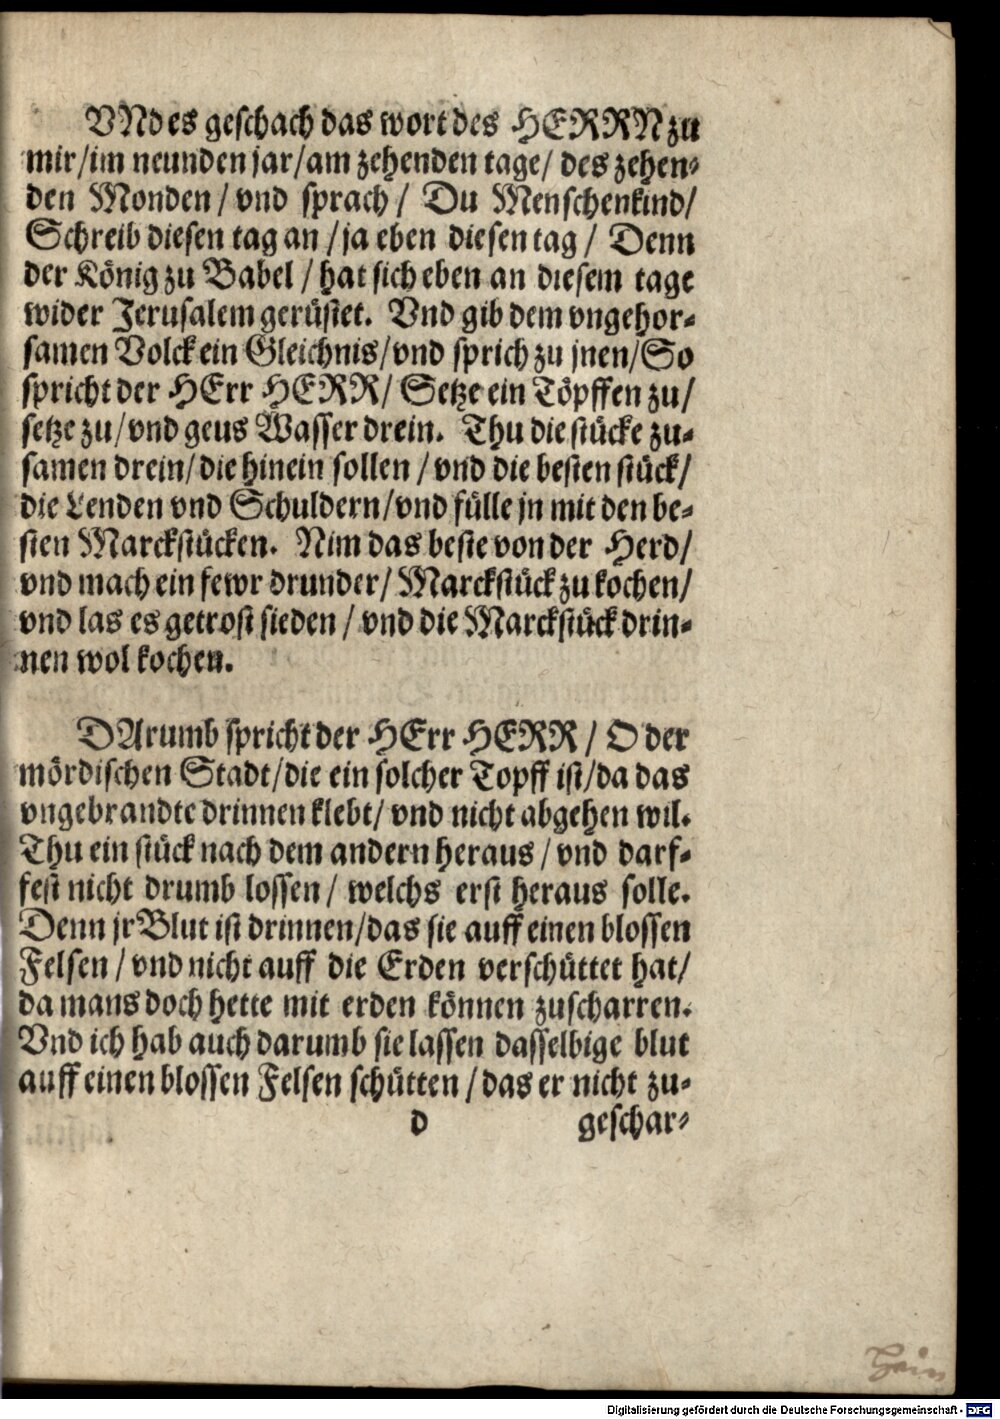 VNd es geschach das wort des HERRN zu
mir/im neunden jar/am zehenden tage/ des zehen⸗
den Monden / vnd sprach / Du Menschenkind/
Schreib diesen tag an / ja eben diesen tag / Denn
der König zu Babel / hat sich eben an diesem tage
wider Jerusalem gerüstet. Vnd gib dem vngehor⸗
samen Volck ein Gleichnis/vnd sprich zu jnen/So
spricht der HErr HERR/ Setze ein Töpffen zu/
setze zu/vnd geus Wasser drein. Thu die stücke zu⸗
samen drein/die hinein sollen / vnd die besten stück/
die Lenden vnd Schuldern/vnd fülle jn mit den be⸗
sten Marckstücken. Nim das beste von der Herd/
vnd mach ein fewr drunder/Marckstück zu kochen/
vnd las es getrost sieden / vnd die Marckstück drin⸗
nen wol kochen.
DArumb spricht der HErr HERR / O der
mördischen Stadt/die ein solcher Topff ist/da das
vngebrandte drinnen klebt/ vnd nicht abgehen wil.
Thu ein stück nach dem andern heraus / vnd darf⸗
fest nicht drumb lossen / welchs erst heraus solle.
Denn jr Blut ist drinnen/das sie auff einen blossen
Felsen / vnd nicht auff die Erden verschüttet hat/
da mans doch hette mit erden können zuscharren.
Vnd ich hab auch darumb sie lassen dasselbige blut
auff einen blossen Felsen schütten / das er nicht zu⸗
d geschar⸗
Digitalisierung gefördert durch die Deutsche Forschungsgemeinschaft - DFG